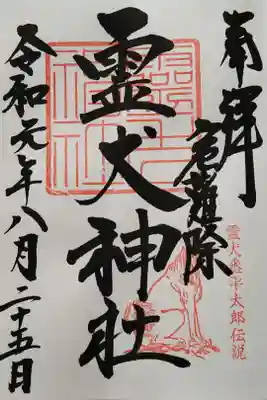 奉拝
厄難除
霊犬神社
令和元年八月二十五日
霊犬悉平太郎伝説